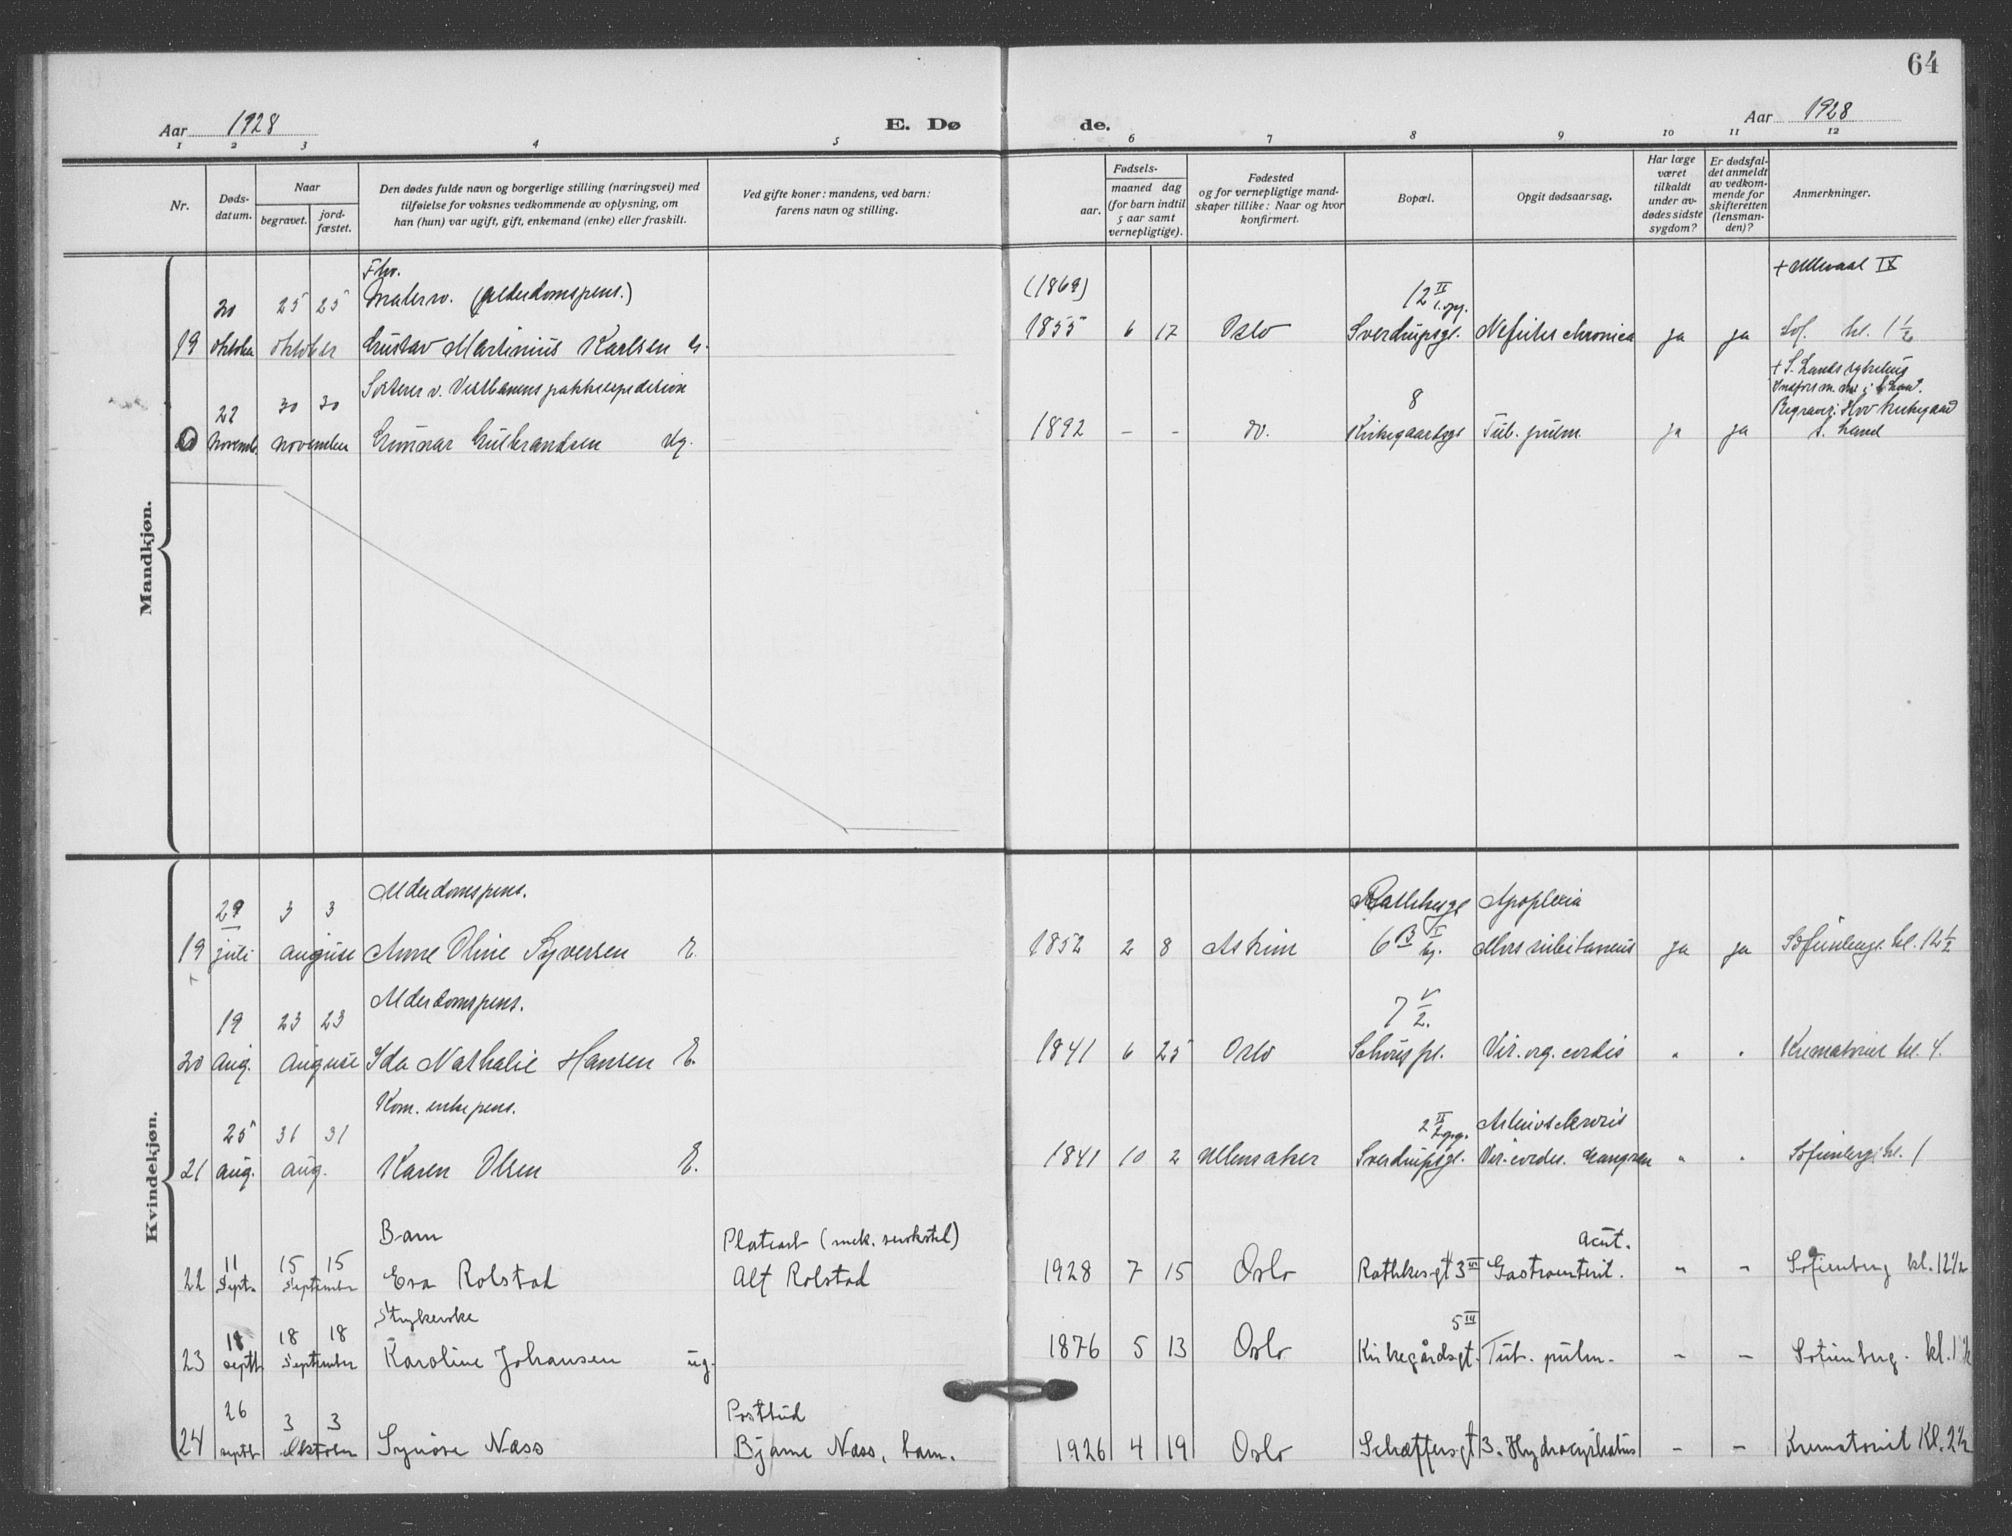 64
Aar 1928
E. Dø
de.
Aar 1928
1 2 3 4 5 6 7 8 9 10 11 12
Nr.
Døds-
datum.
Naar
begravet.
jord-
fæstet.
Den dødes fulde navn og borgerlige stilling (næringsvei) med
tilføielse for voksnes vedkommende av oplysning, om
han (hun) var ugift, gift, enkemand (enke) eller fraskilt.
Ved gifte koner: mandens, ved barn:
farens navn og stilling.
Fødsels-
aar.
maaned dag
(for barn indtil
5 aar samt
vernepligtige).
Fødested
og for vernepligtige mand-
skaper tillike: Naar og hvor
konfirmert.
Bopæl.
Opgit dødsaarsag.
Har læge
været
tilkaldt
under av-
dødes sidste
sygdom?
Er dødsfal-
det anmeldt
av vedkom-
mende for
skifteretten
(lensman-
den)?
Anmerkninger.
Mandkjøn.
Fhv. + Ullevaal IX
20 25 25 Malersv. (alderdomspens.) (1869) 12 II
19 oktober oktober Gustav Martinius Karlsen 1855 6 17 Oslo Sverdrupsgt. Nefritis chronica ja ja Sof. kl. 1 1/2
22 30 30 Sorterer v. Vestbanens pakkeexpedition 8
november november Gunnar Gulbrandsen ug. 1892 - - do. Kirkegaardsgt Tub. pulm. ja ja Begravet: Hov Kirkegaard
S. Land
Kvindekjøn.
29 3 3 Alderdomspens. Rathkesgt Apoplexia
19 juli august Anne Oline Syversen E. 1852 2 8 Askim 6 B I Mors subitaneus ja ja Sofienberg kl. 12 1/2
19 23 23 Alderdomspens. 7 V/2.
20 Aug. August Ida Nathalie Hansen E. 1841 6 25 Oslo Schous pl. Vit. org. cordis " " Krematoriet kl. 4.
25 31 31 Kom. enkepens. 2 II Arteriosclerosis
21 Aug. Aug. Karen Olsen E. 1841 10 2 Ullensaker Sverdrupsgt. Vit. cordis. Gangræn " " Sofienberg kl. 1
11 15 15 Barn Platearb. (mek. verksted) acut.
22 Sept. September Eva Rolstad Alf Rolstad 1928 7 15 Oslo Rathkesgt 3 III Gastroenterit. " " Sofienberg kl. 12 1/2
18 18 18 Strykerske 5 III
23 septb September Karoline Johansen ug. 1876 5 13 Oslo Kirkegårdsgt. Tub. pulm. - - Sofienberg. kl. 1 1/2
26 3 3 Postbud
24 septb Oktober Synøve Næss Bjarne Næss, barn. 1926 4 19 Oslo Schæffersgt 3. Hydrocephalus - - Krematoriet Kl. 2 1/2